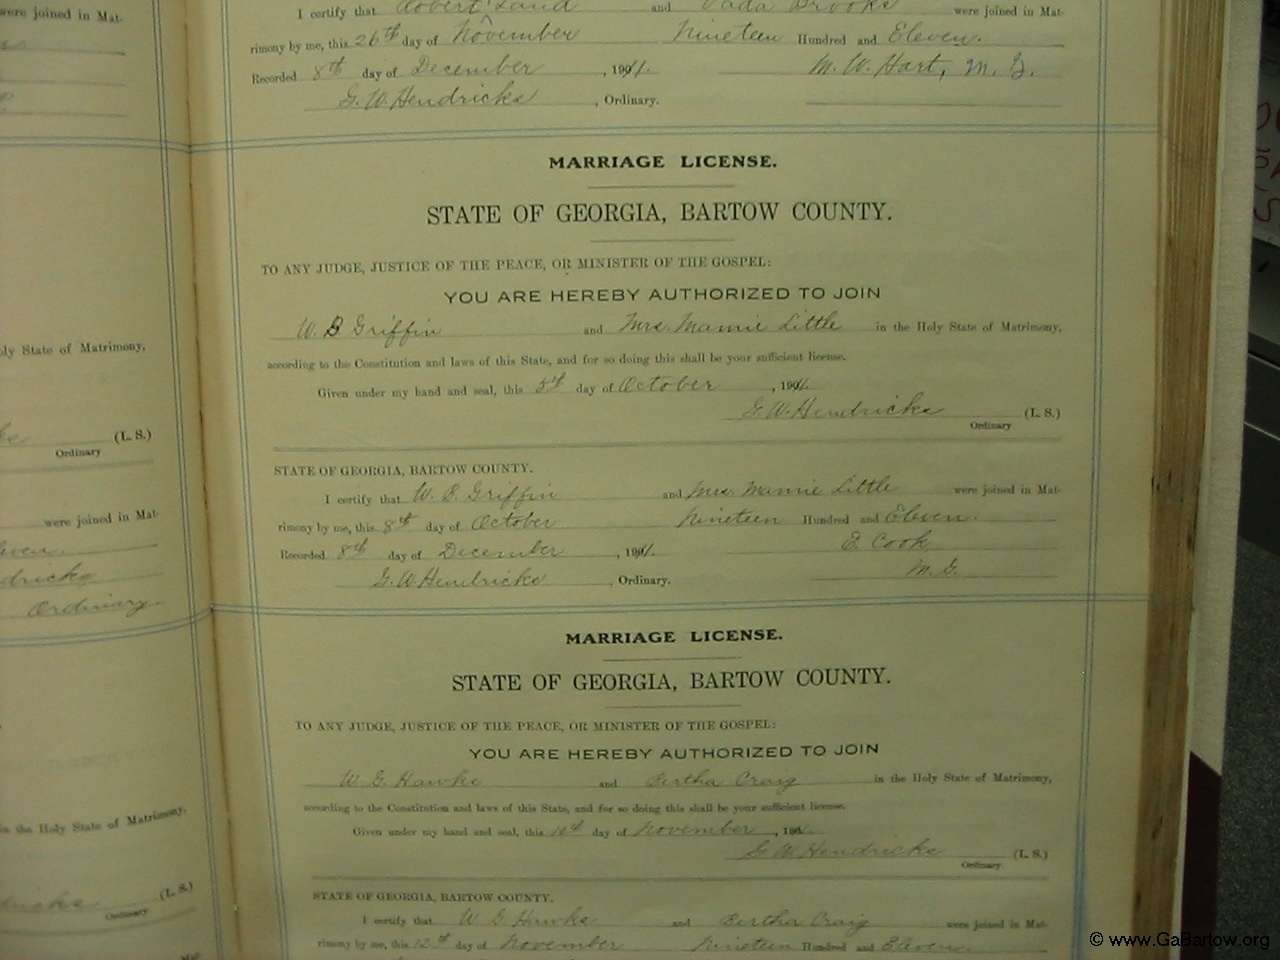 were joined in Mat-
I certify that Robert Land and Vada Brooks were joined in Mat-
rimony by me, this 26th day of November Nineteen Hundred and Eleven.
Recorded 8th day of December, 1911.
M. W. Hart, M. G.
G. W. Hendricks, Ordinary.
MARRIAGE LICENSE.
STATE OF GEORGIA, BARTOW COUNTY.
TO ANY JUDGE, JUSTICE OF THE PEACE, OR MINISTER OF THE GOSPEL:
YOU ARE HEREBY AUTHORIZED TO JOIN
W. B Griffin and Mrs. Mamie Little in the Holy State of Matrimony,
according to the Constitution and laws of this State, and for so doing this shall be your sufficient license.
Given under my hand and seal, this day of October, 1911.
G. W. Hendricks (L. S.)
Ordinary
STATE OF GEORGIA, BARTOW COUNTY.
I certify that W. B. Griffin and Mrs. Mamie Little were joined in Mat-
rimony by me, this 8th day of October Nineteen Hundred and Eleven.
Recorded 8th day of December, 1911.
E. Cook
M. G.
G. W. Hendricks, Ordinary.
MARRIAGE LICENSE.
STATE OF GEORGIA, BARTOW COUNTY.
TO ANY JUDGE, JUSTICE OF THE PEACE, OR MINISTER OF THE GOSPEL:
YOU ARE HEREBY AUTHORIZED TO JOIN
W. G. Hawks and Bertha Craig in the Holy State of Matrimony,
according to the Constitution and laws of this State, and for so doing this shall be your sufficient license.
Given under my hand and seal, this day of November, 1911.
G. W. Hendricks (L. S.)
Ordinary.
STATE OF GEORGIA, BARTOW COUNTY.
I certify that W. G. Hawks and Bertha Craig were joined in Mat-
rimony by me, this 12th day of November Nineteen Hundred and Eleven.
State of Matrimony,
(L. S.)
Ordinary
were joined in Mat-
Ordinary.
in the Holy State of Matrimony,
(L. S.)
Ordinary
© www.GaBartow.org